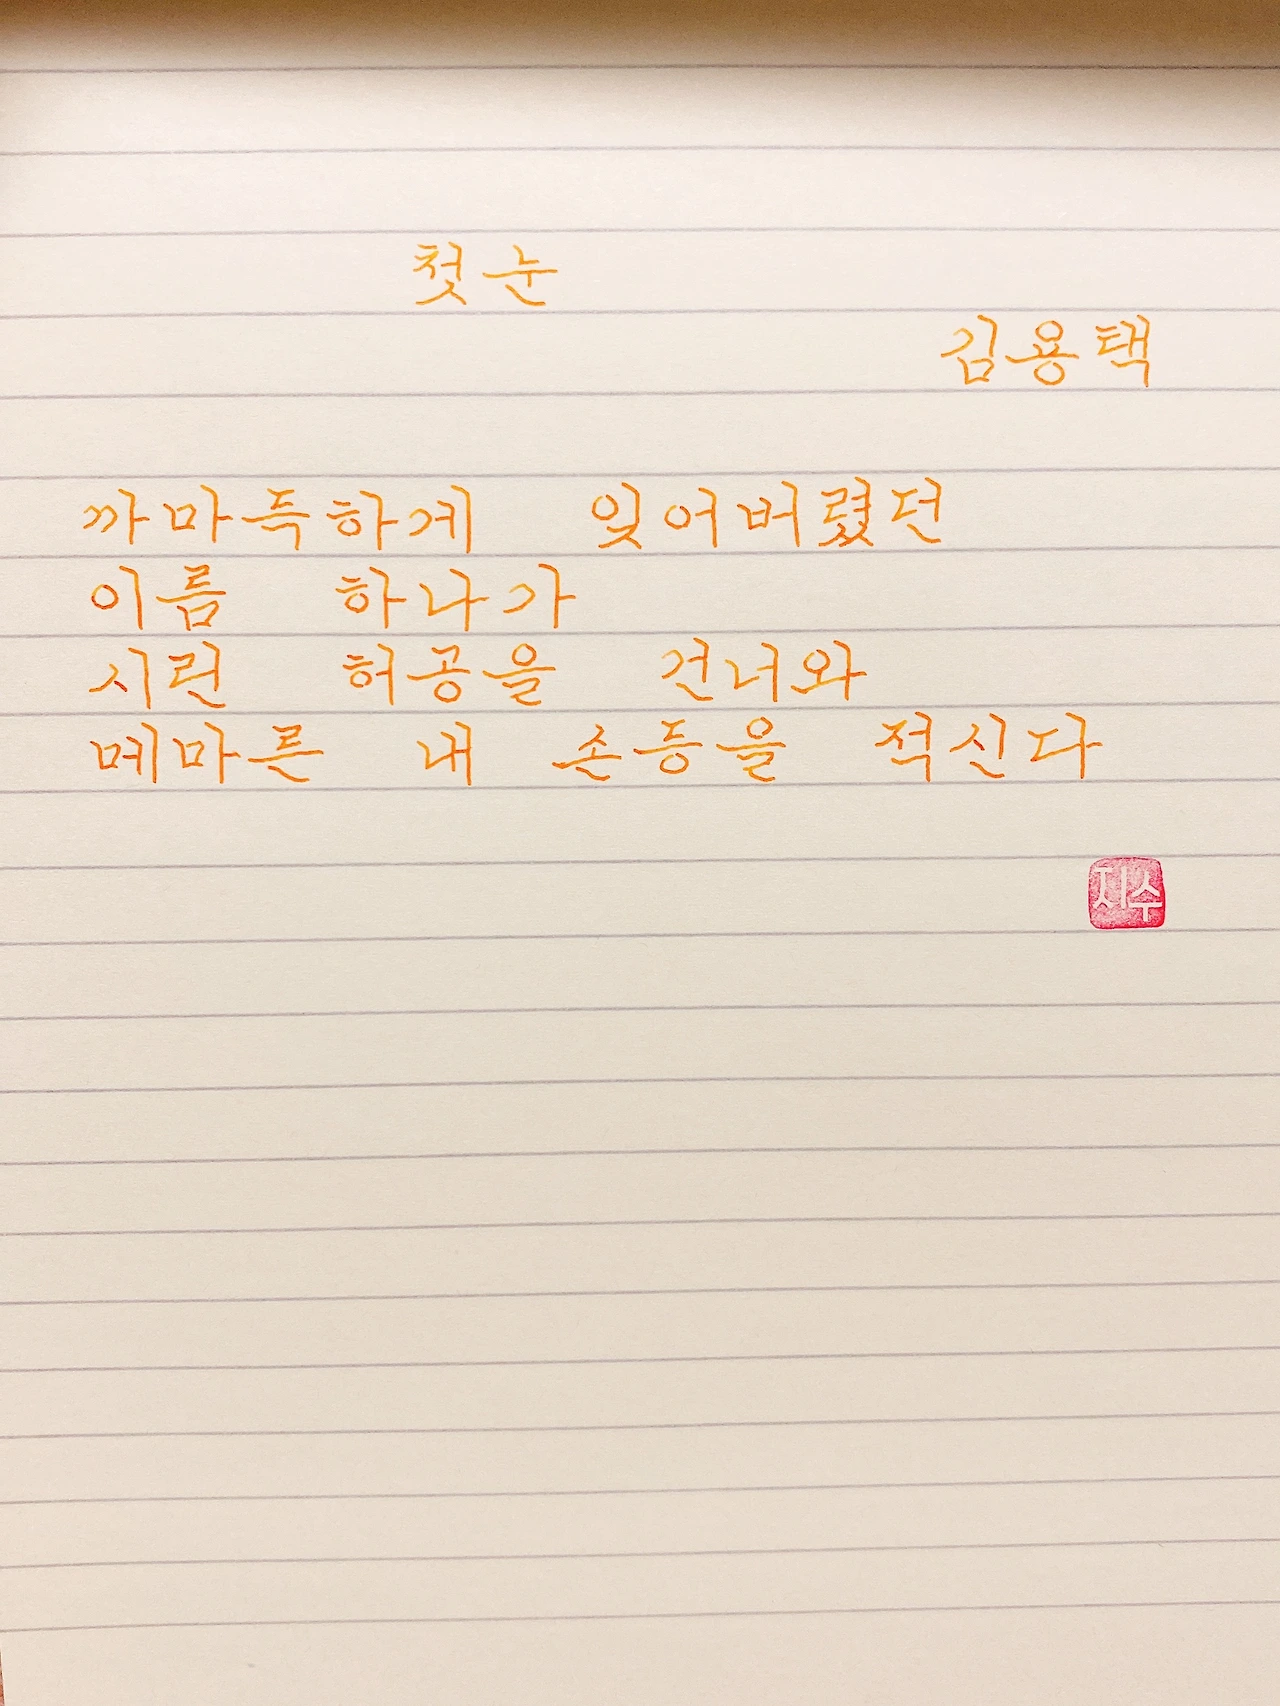 첫눈
김용택
까마득하게 잊어버렸던
이름 하나가
시린 허공을 건너와
메마른 내 손등을 적신다
지수